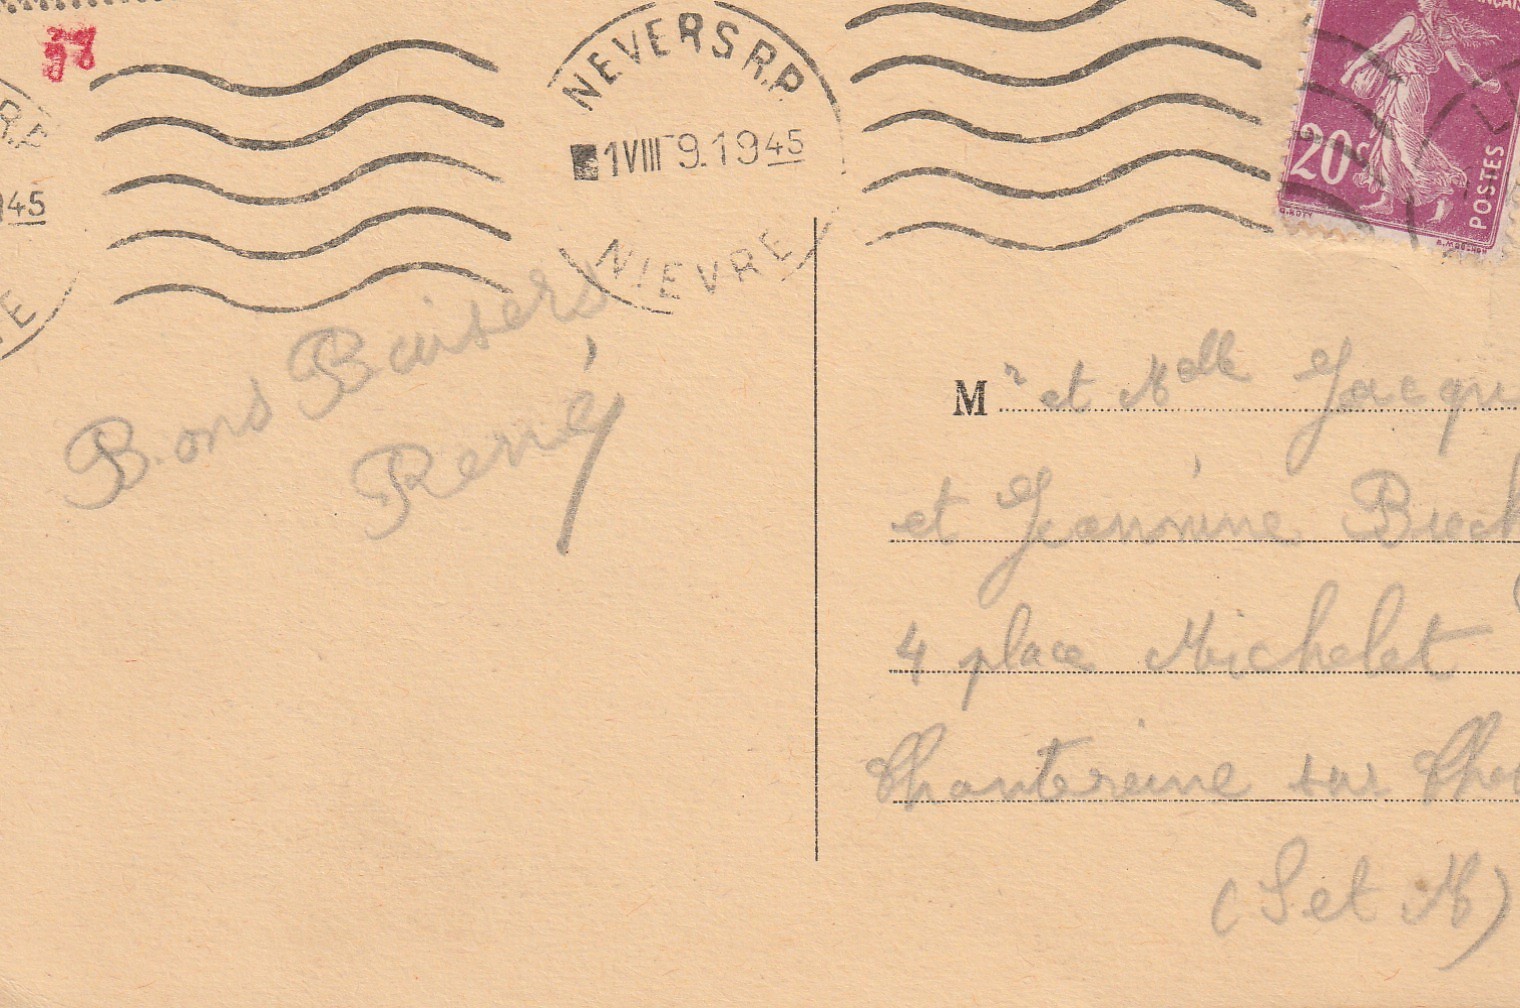 NEVERS R.P
1 VIII 9.1945
NIEVRE
45
20c
POSTES
Bons Baisers
René
Mr et Melle Jacqu
et Jeannine
4 place Michelet
Chantereine sur
(S et M)